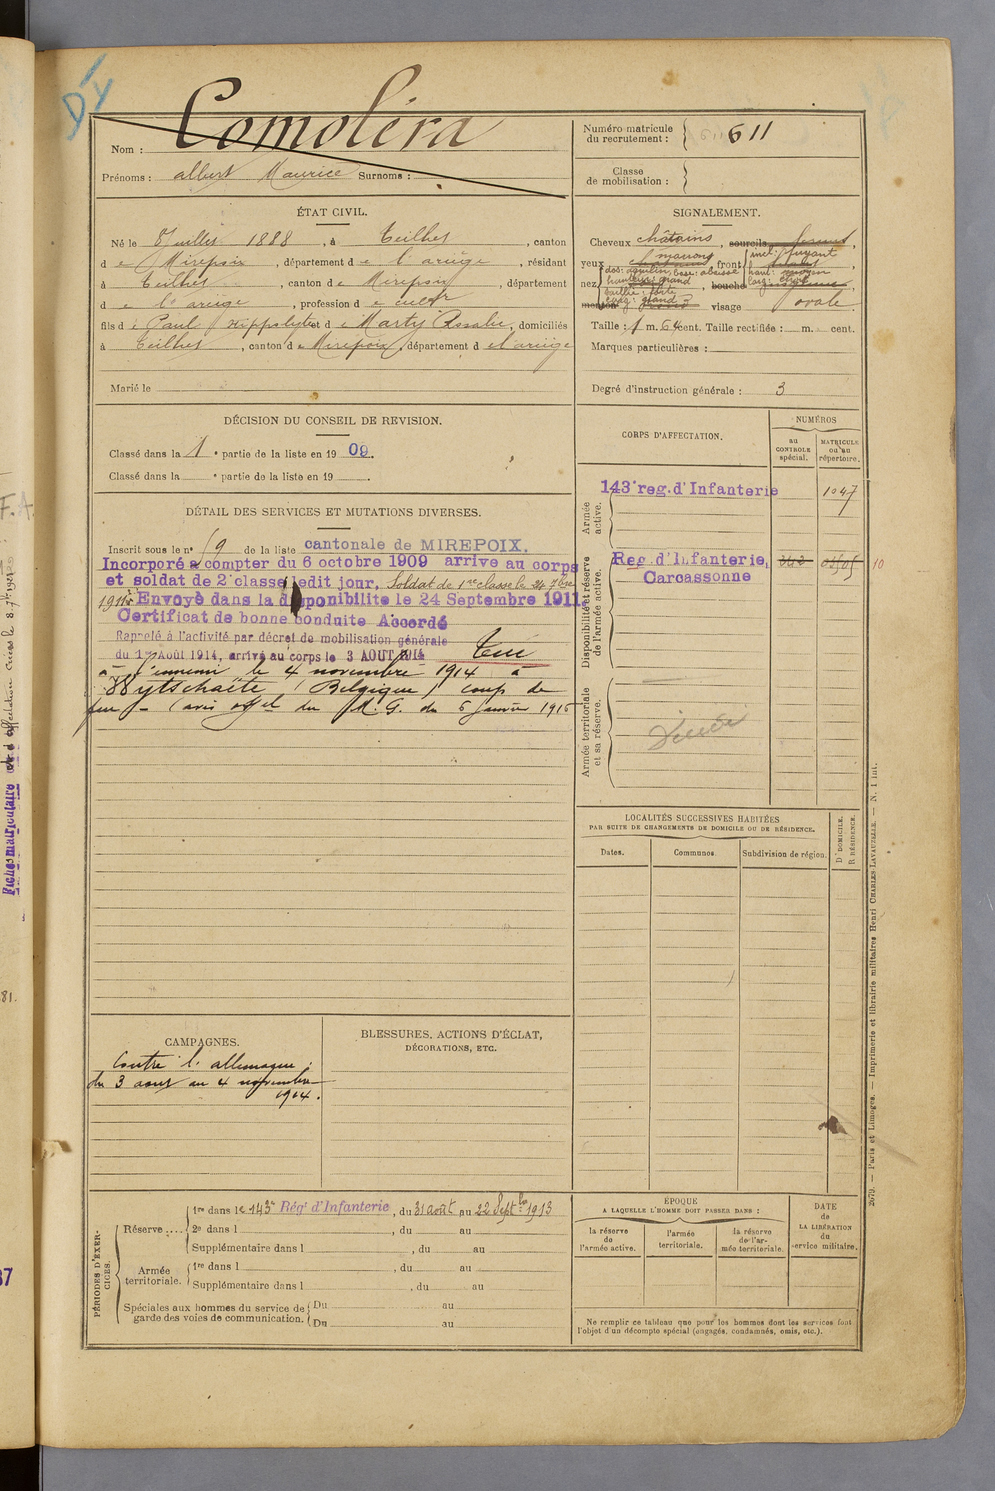 DX
Nom : Comoléra
Prénoms : albert Maurice Surnoms :
Numéro matricule du recrutement : 611
Classe de mobilisation :
ÉTAT CIVIL.
Né le Juillet 1888, à Teilhet, canton
de Mirepoix, département de l'ariège, résidant
à Teilhet, canton de Mirepoix, département
de l'ariège, profession de cultr
fils de Paul Hippolyte et de Marty Rosalie, domiciliés
à Teilhet, canton de Mirepoix, département de l'ariège
Marié le
SIGNALEMENT.
Cheveux châtains, sourcils
yeux marrons front incl: fuyant
haut: moyen
larg:
nez dos: aquilin, base: abaissé
hauteur: grand
saillie: forte
larg: grand, bouche
menton visage ovale
Taille : 1 m. 64 cent. Taille rectifiée : m. cent.
Marques particulières :
Degré d'instruction générale : 3
DÉCISION DU CONSEIL DE REVISION.
Classé dans la 1e partie de la liste en 1909.
Classé dans la e partie de la liste en 19 .
DÉTAIL DES SERVICES ET MUTATIONS DIVERSES.
Inscrit sous le n° 59 de la liste cantonale de MIREPOIX.
Incorporé à compter du 6 octobre 1909 arrive au corps
et soldat de 2e classe ledit jour. Soldat de 1re classe le 24 7bre
1911. Envoyé dans la disponibilite le 24 Septembre 1911.
Certificat de bonne conduite Accordé
Rappelé à l'activité par décret de mobilisation générale
du 1er Août 1914, arrivé au corps le 3 AOUT 1914 Tué
à l'ennemi le 4 novembre 1914 à
Wytschaëte (Belgique) coup de
feu - (avis offel du M. G. du 5 janvier 1915
CORPS D'AFFECTATION.
NUMÉROS
au CONTROLE spécial.
MATRICULE ou au répertoire.
Armée active.
143e reg. d'Infanterie 1047
Disponibilité et réserve de l'armée active.
Reg. d'Infanterie, Carcassonne 10
Armée territoriale et sa réserve.
LOCALITÉS SUCCESSIVES HABITÉES
PAR SUITE DE CHANGEMENTS DE DOMICILE OU DE RÉSIDENCE.
Dates.
Communes.
Subdivision de région.
D. DOMICILE.
R. RÉSIDENCE.
CAMPAGNES.
Contre l'allemagne :
du 3 aout au 4 novembre
1914.
BLESSURES, ACTIONS D'ÉCLAT,
DÉCORATIONS, ETC.
PÉRIODES D'EXERCICES.
Réserve ....
1re dans le 143e Rég. d'Infanterie, du 31 août au 22 Septbre 1913
2e dans l , du au
Supplémentaire dans l , du au
Armée territoriale.
1re dans l , du au
Supplémentaire dans l , du au
Spéciales aux hommes du service de garde des voies de communication.
Du au
Du au
ÉPOQUE
A LAQUELLE L'HOMME DOIT PASSER DANS :
la réserve de l'armée active.
l'armée territoriale.
la réserve de l'armée territoriale.
DATE de LA LIBÉRATION du service militaire.
Ne remplir ce tableau que pour les hommes dont les services font
l'objet d'un décompte spécial (engagés, condamnés, omis, etc.).
2079. — Paris et Limoges. — Imprimerie et librairie militaires Henri CHARLES-LAVAUZELLE. — N. 1 int.
F.A.
81.
37